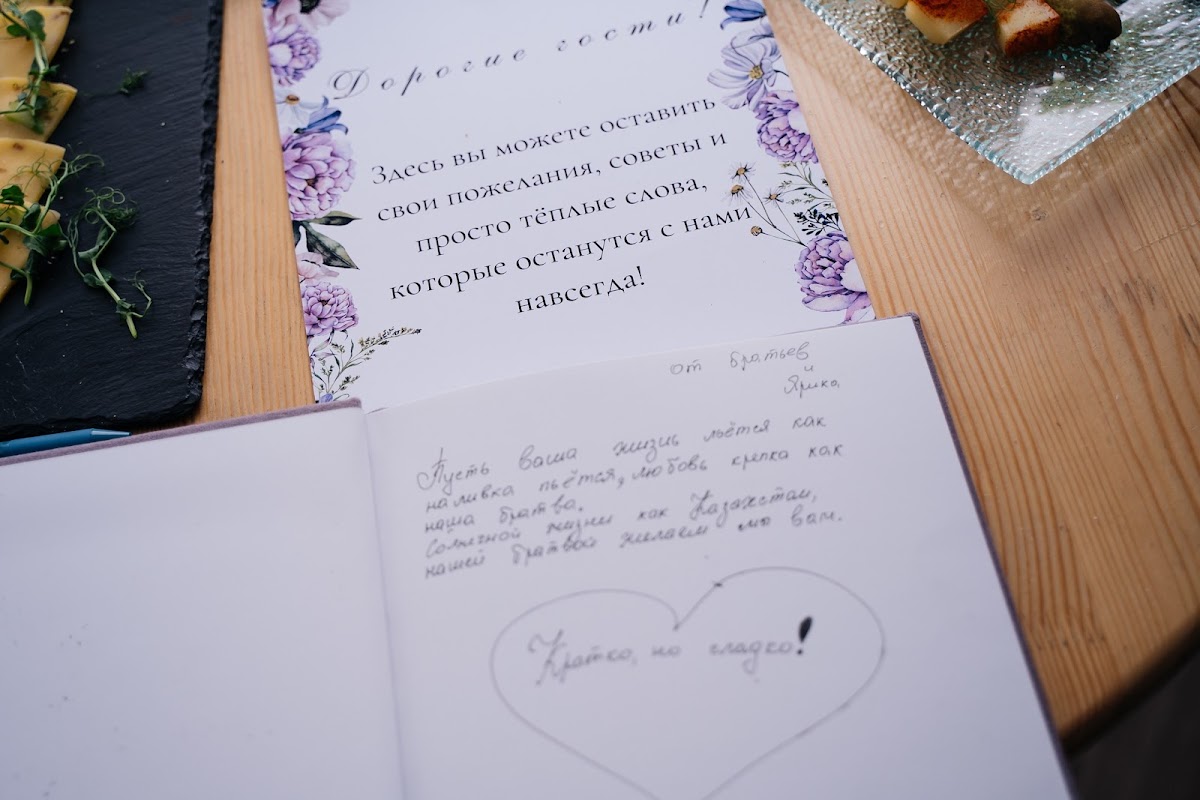 Дорогие гости!
Здесь вы можете оставить
свои пожелания, советы и
просто тёплые слова,
которые останутся с нами
навсегда!
от братьев
Ярика
Пусть ваша жизнь льётся как
наливка пьётся, любовь крепка как
наша братва.
Солнечной жизни как Казахстан,
нашей братвой желаем мо вам.
Кратко, но гладко!